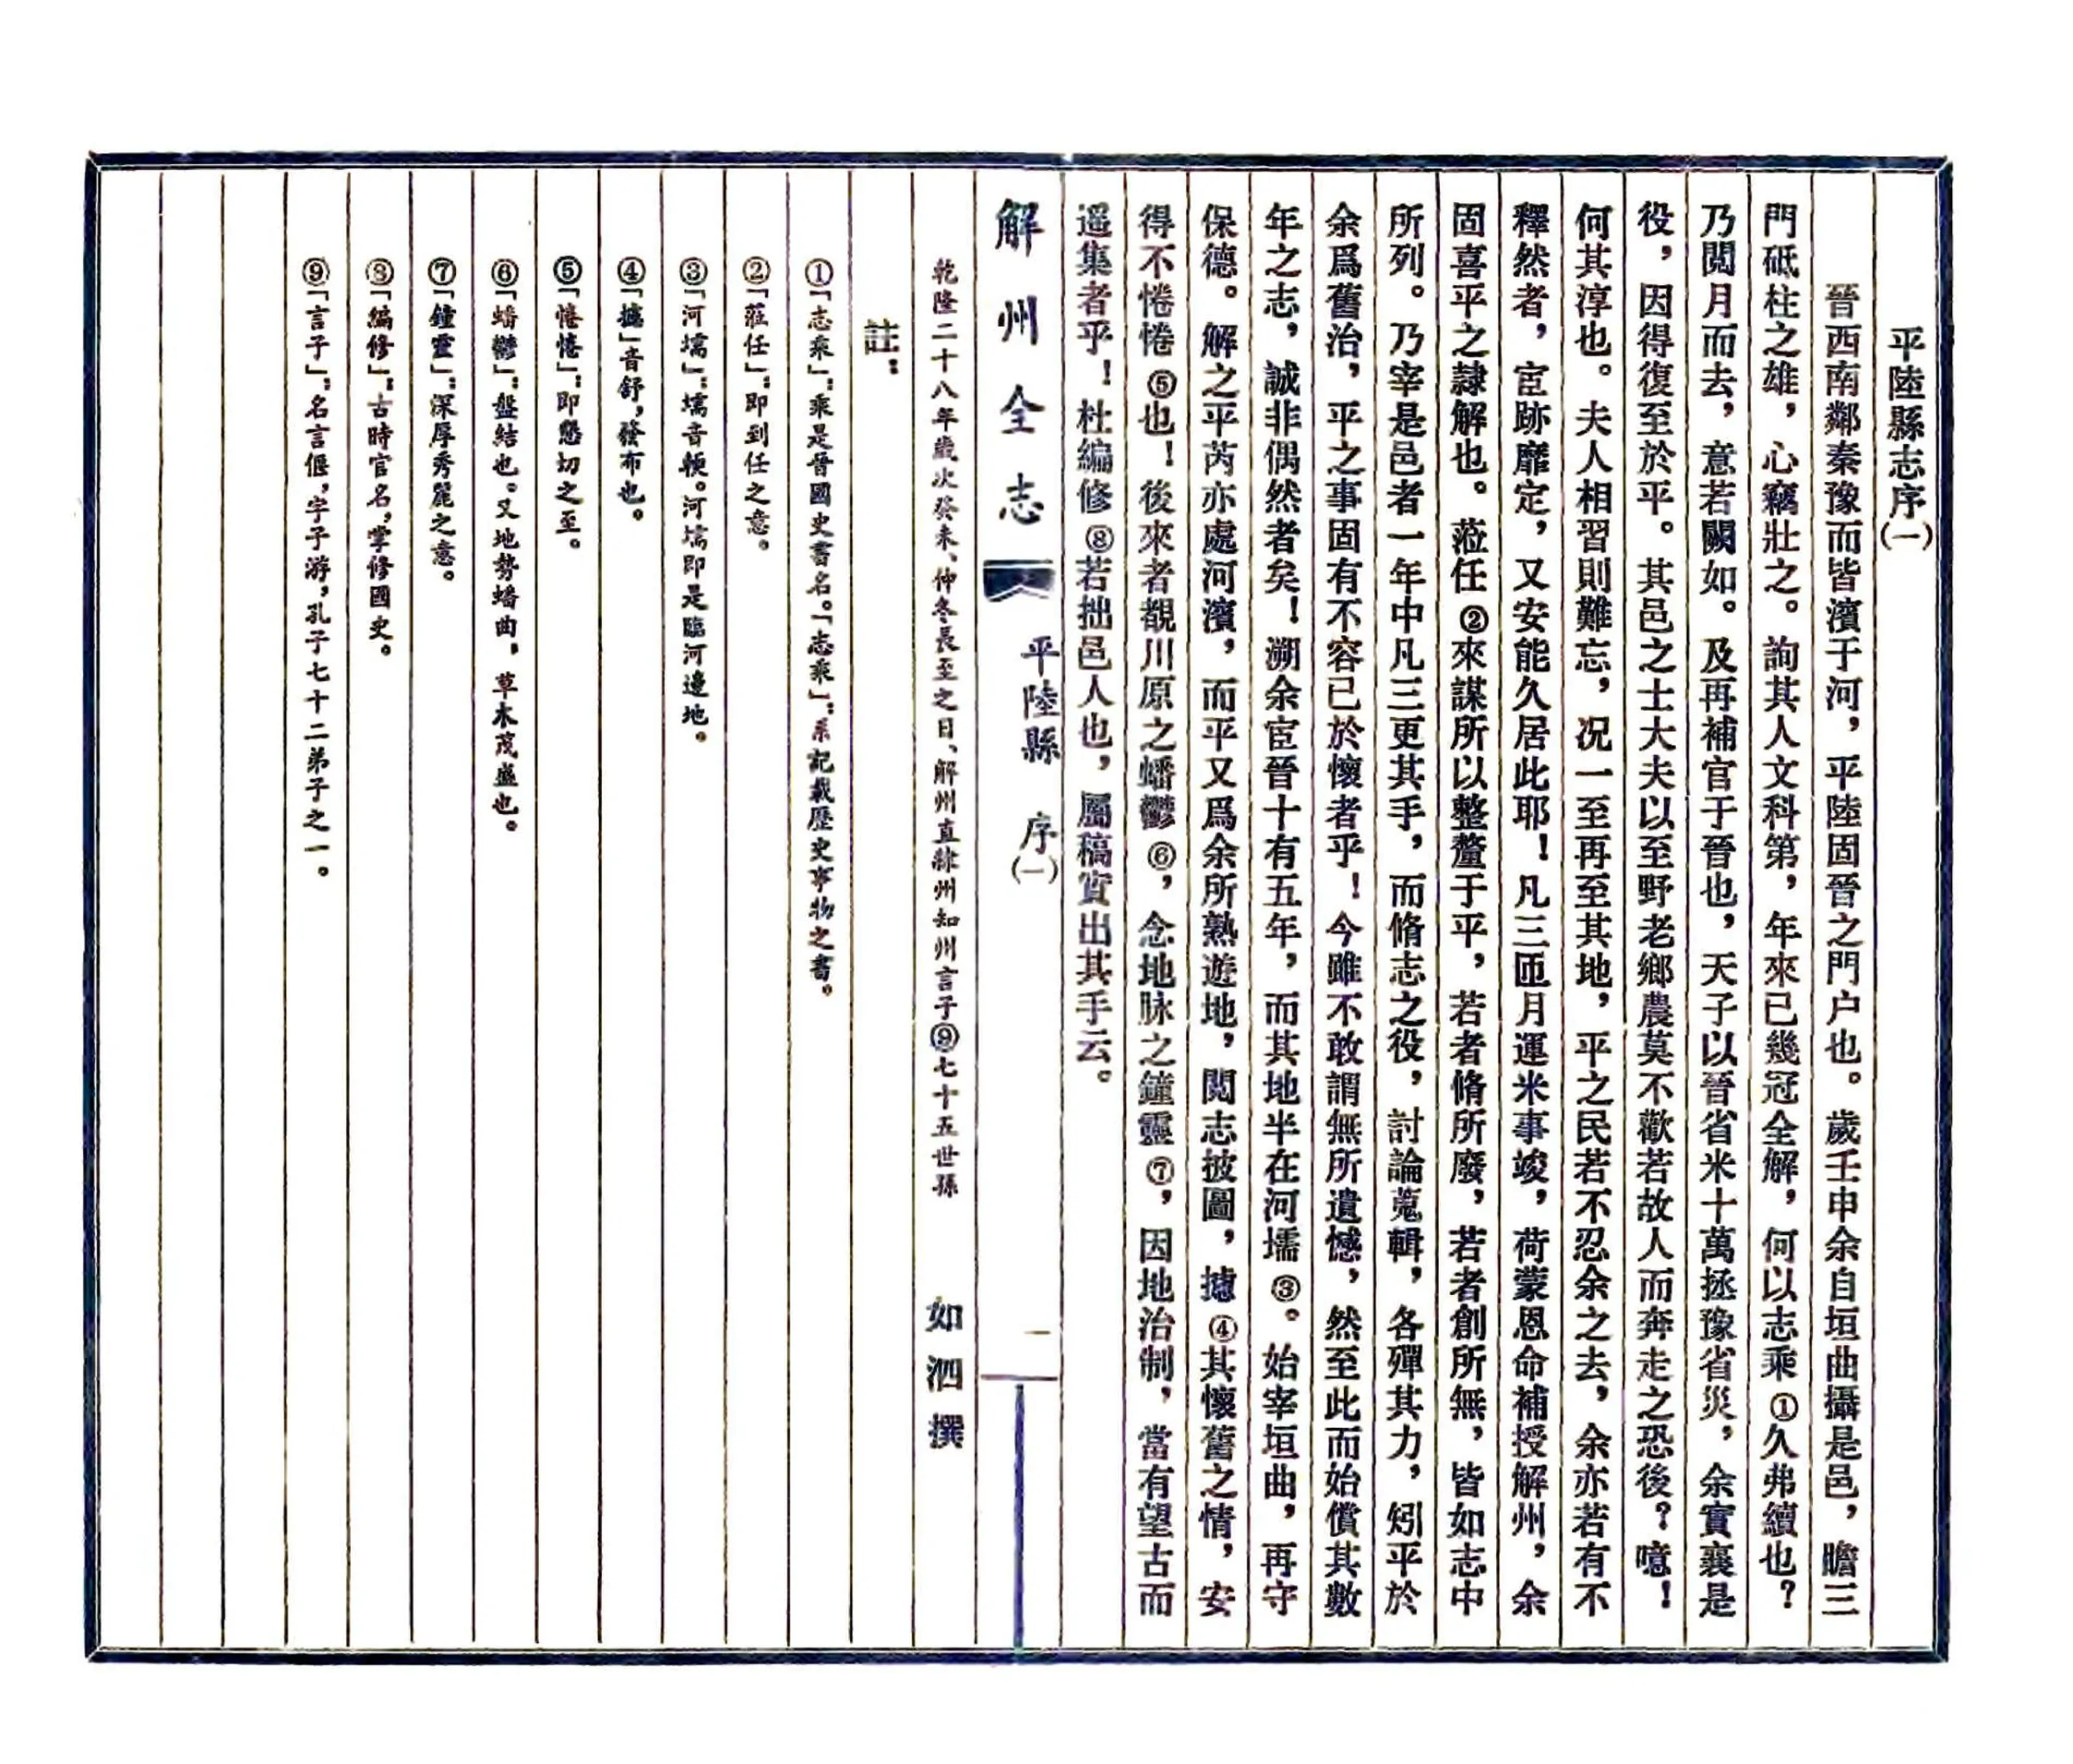 平陸縣志序(一)
晉西南鄰秦豫而皆濱于河，平陸固晉之門户也。歲壬申余自垣曲攝是邑，瞻三
門砥柱之雄，心竊壯之。詢其人文科第，年來已幾冠全解，何以志乘①久弗續也？
乃閲月而去，意若闕如。及再補官于晉也，天子以晉省米十萬拯豫省災，余實襄是
役，因得復至於平。其邑之士大夫以至野老鄉農莫不歡若故人而奔走之恐後？噫！
何其淳也。夫人相習則難忘，况一至再至其地，平之民若不忍余之去，余亦若有不
釋然者，宦跡靡定，又安能久居此耶！凡三匝月運米事竣，荷蒙恩命補授解州，余
固喜平之隷解也。蒞任②來謀所以整釐于平，若者脩所廢，若者創所無，皆如志中
所列。乃宰是邑者一年中凡三更其手，而脩志之役，討論蒐輯，各殫其力，矧平於
余爲舊治，平之事固有不容已於懷者乎！今雖不敢謂無所遺憾，然至此而始償其數
年之志，誠非偶然者矣！溯余宦晉十有五年，而其地半在河壖③。始宰垣曲，再守
保德。解之平芮亦處河濱，而平又爲余所熟遊地，閲志披圖，攄④其懷舊之情，安
得不惓惓⑤也！後來者覩川原之蟠鬱⑥，念地脉之鐘靈⑦，因地治制，當有望古而
遥集者乎！杜編修⑧若拙邑人也，屬稿實出其手云。
解州全志 平陸縣 序(一) 一
乾隆二十八年歲次癸未、仲冬長至之日、解州直隸州知州言子⑨七十五世孫 如泗撰
註：
①「志乘」：乘是晉國史書名。「志乘」：系記載歷史事物之書。
②「莊任」：即到任之意。
③「河壖」：壖音軟。河壖即是臨河邊地。
④「攄」音舒，發布也。
⑤「惓惓」：即懇切之至。
⑥「蟠鬱」：盤結也。又地勢蟠曲，草木茂盛也。
⑦「鐘靈」：深厚秀麗之意。
⑧「編修」：古時官名，掌修國史。
⑨「言子」：名言偃，字子游，孔子七十二弟子之一。